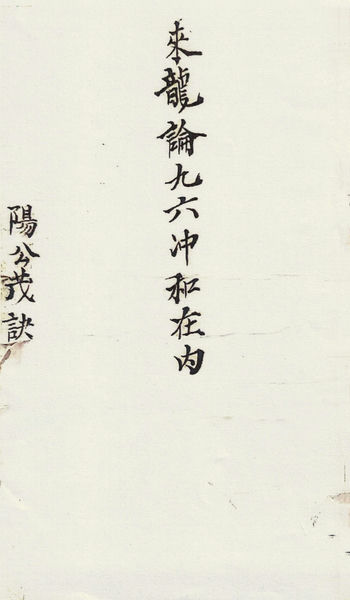 來龍論九六冲和在内
陽公茂訣